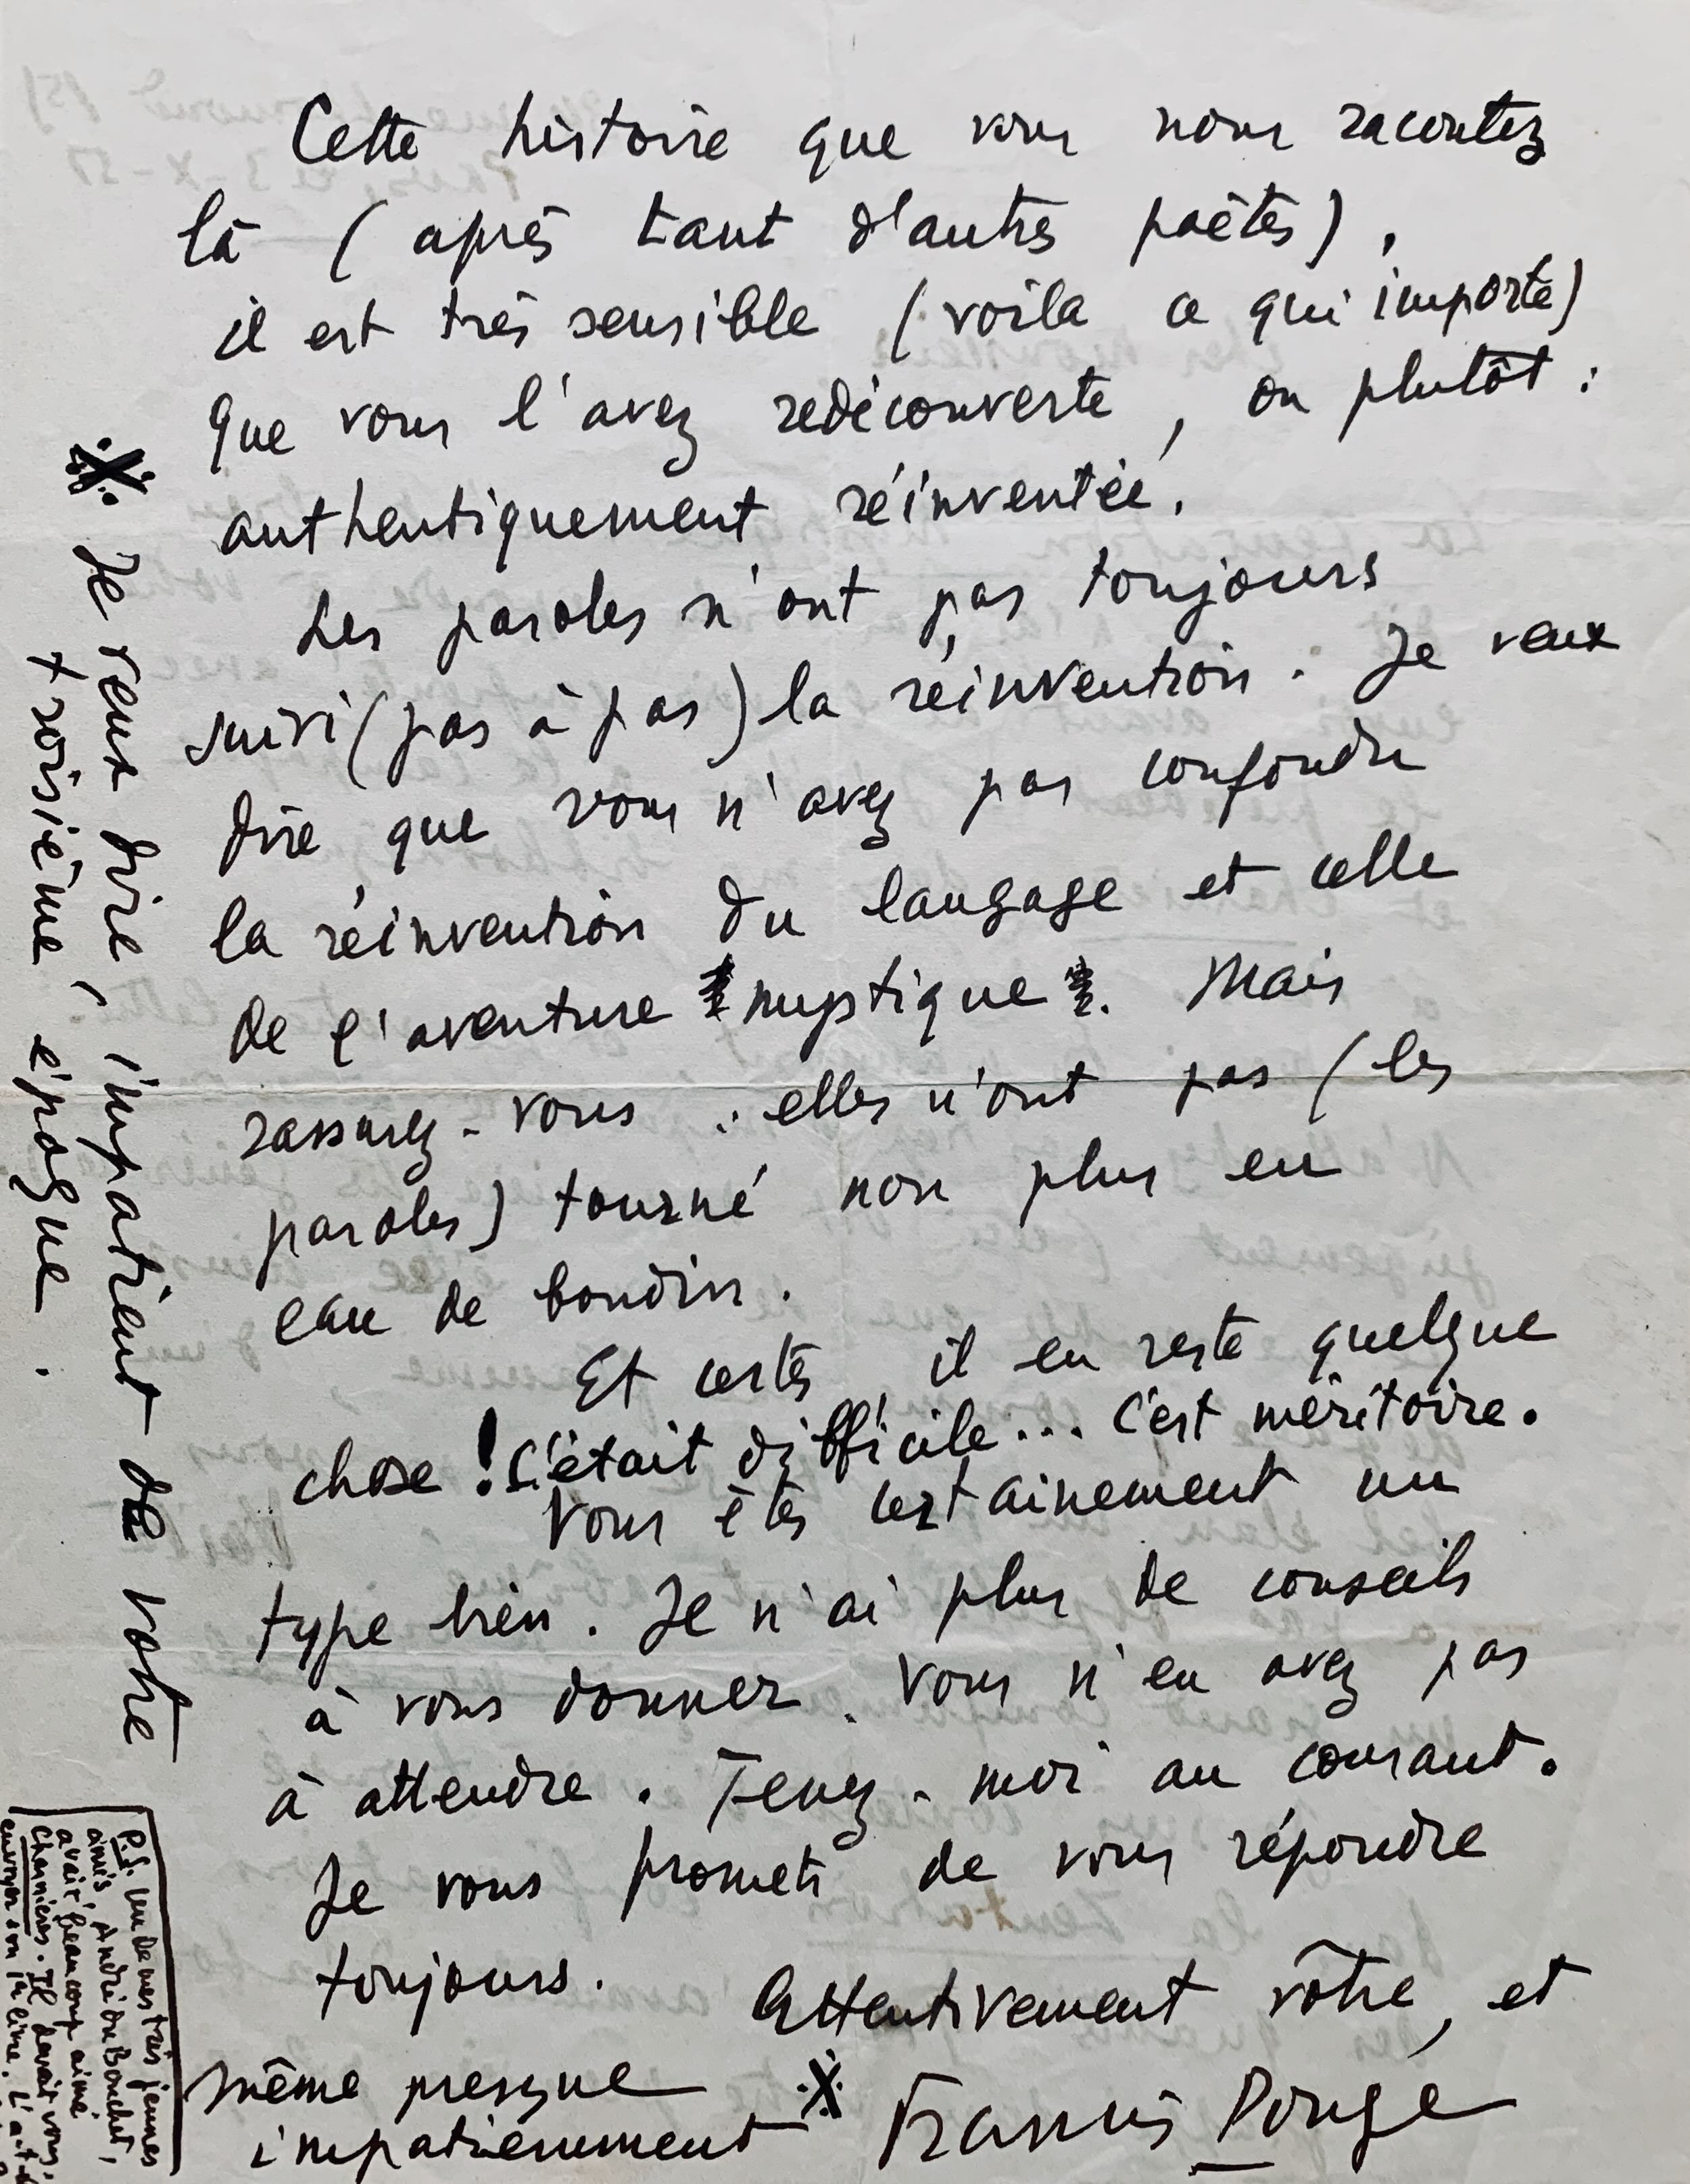 Cette histoire que vous nous racontez
là (après tant d'autres poètes),
il est très sensible (voilà ce qui importe)
que vous l'avez redécouverte, ou plutôt :
authentiquement réinventée.
Les paroles n'ont pas toujours
suivi (pas à pas) la réinvention. Je veux
dire que vous n'avez pas confondu
la réinvention du langage et celle
de l'aventure mystique. Mais
rassurez-vous : elles n'ont pas (les
paroles) tourné non plus en
eau de boudin.
Et certes il en reste quelque
chose ! C'était difficile... C'est méritoire.
Vous êtes certainement un
type bien. Je n'ai plus de conseils
à vous donner. Vous n'en avez pas
à attendre. Tenez-moi au courant.
Je vous promets de vous répondre
toujours.
Attentivement vôtre, et
même presque
impatiemment ※
Francis Ponge
※ Je veux dire, impatient de votre
troisième époque.
P.S. Un de mes très jeunes
amis, André du Bouchet,
avait beaucoup aimé
Charnières. Il devait vous
envoyer son 1er livre. L'a-t-